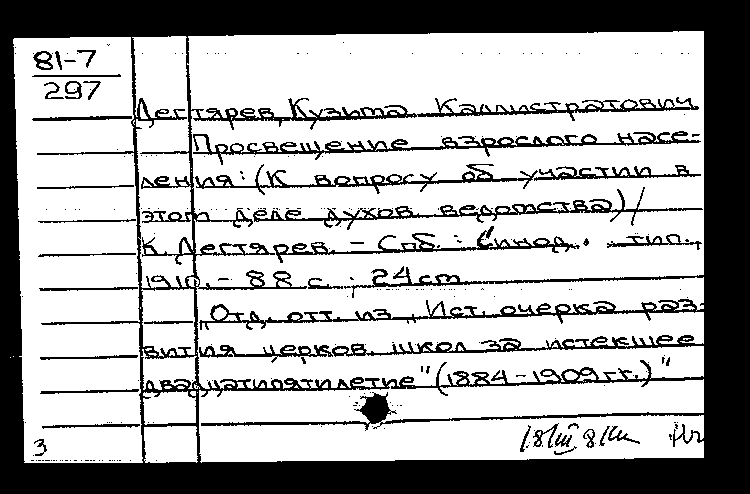 81-7
297
Дегтярев, Кузьма Каллистратович
Просвещение взрослого насе-
ления: (К вопросу об участии в
этом деле духов. ведомства) /
К. Дегтярев. - Спб.: Синод. тип.,
1910. - 88 с. ; 24 cm
„Отд. отт. из „Ист. очерка раз-
вития церков. школ за истекшее
двадцатипятилетие" (1884-1909 гг.)"
3